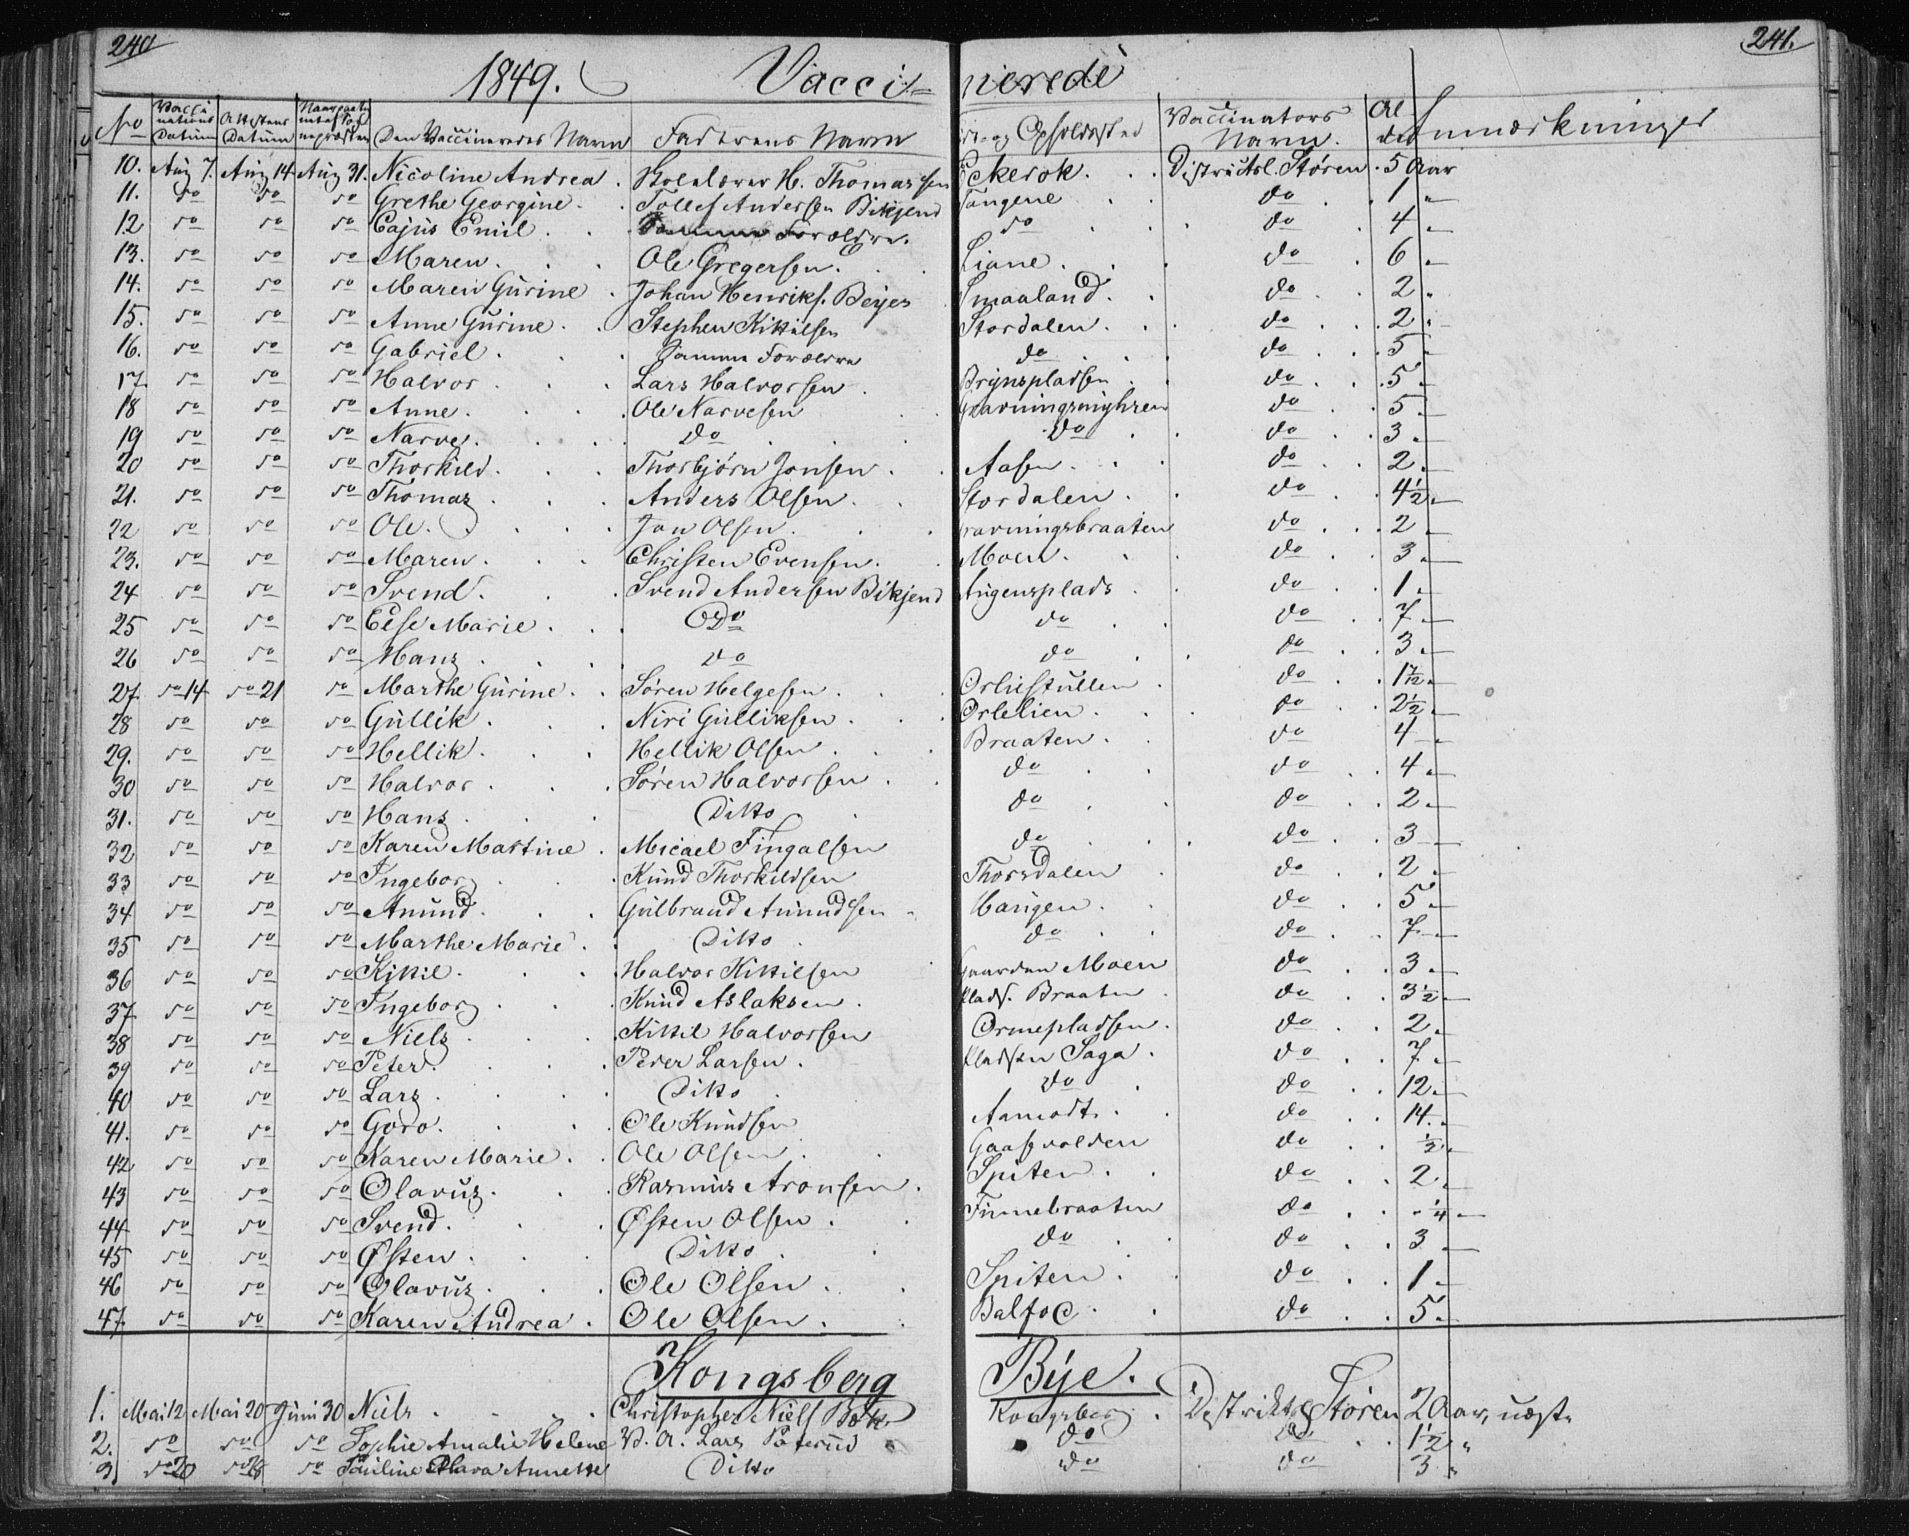 240 241.
1849. Vaccinerede
No Vaccinations Datum Attestens Datum Den Vaccineredes Navn Fadrens Navn og Opholdssted Vaccinators Navn. Alder Anmærkninger
10. Aug 7. Aug 14 Aug 31. Nicoline Andrea. Skolelærer H. Thomassen Eckerok. Districtsl. Støren. 5 Aar
11. do do do Grethe Georgine. Tollef Andersen Bikjend Tangene do 1 "
12 do do do Cajus Emil. Samme Forældre. do do 4 "
13. do do do Maren. Ole Gregersen. Liane. do 6 "
14. do do do Maren Gurine. Johan Henriks. Beyer Smaaland. do 2 "
15. do do do Anne Gurine. Stephen Kittilsen Stordalen. do 2 "
16. do do do Gabriel. Samme Forældre do do 5 "
17. do do do Halvor. Lars Halvorsen Brynspladsen do 5 "
18 do do do Anne. Ole Narvesen Gravningsmyhren do 5 "
19 do do do Narve. do do do 3 "
20 do do do Thorkild. Thorbjørn Jonsen. Aasen. do 2 "
21. do do do Thomas Anders Olsen. Stordalen. do 4½ "
22 do do do Ole. Jon Olsen. Gravningsbraaten do 2 "
23. do do do Maren. Christen Evensen. Moen. do 3 "
24 do do do Svend. Svend Andersen Bikjend Augensplads do 1 "
25 do do do Else Marie. Do do do 7 "
26 do do do Hans. do do do 3 "
27. do 14 do 21 do Marthe Gurine. Søren Helgesen. do
28 do do do Gullik. Niri Gulliksen. Orlelien. do 2½ "
29. do do do Hellik. Hellik Olsen. Braaten. do 4 "
30 do do do Halvor. Søren Halvorsen. do do 4 "
31. do do do Hans. Ditto do do 2 "
32 do do do Karen Martine. Micael Fingalsen do do 3 "
33 do do do Ingeborg Knud Thorkildsen Thorsdalen do 2 "
34 do do do Amund. Gulbrand Amundsen Haugen. do 5 "
35 do do do Marthe Marie. Ditto do do 7 "
36 do do do Kittil. Halvor Kittilsen Gaarden Moen do 3 "
37. do do do Ingeborg Knud Aslaksen. Plads. Braaten do 3½ "
38 do do do Niels. Kittil Halvorsen Ormepladsen. do 2 "
39 do do do Peter. Peder Larsen. Pladsen Saga. do 7 "
40 do do do Lars. Ditto do do 12 "
41. do do do Goro. Ole Knudsen Aamodt. do 14 "
42 do do do Karen Marie. Ole Olsen. do ½ "
43 do do do Olavus. Rasmus Aronsen. Spiten. do 2 "
44 do do do Svend. Østen Olsen. Finnebraaten do ¼ "
45 do do do Østen. Ditto do do 3 "
46 do do do Olavus. Ole Olsen. Spiten. do 1 "
47. do do do Karen Andrea. Ole Olsen. do 5 "
Kongsberg Bye.
1. Mai 12 Mai 20 Juni 30 Niels Christopher Niels Kongsberg. Distriktsl Støren 2 Aar, næst.
2. do do do Sophie Amalie Helene Lars Paterud do do 1½ "
3. do 20 do 28 do Pauline Olava Annette Ditto do do 3 "